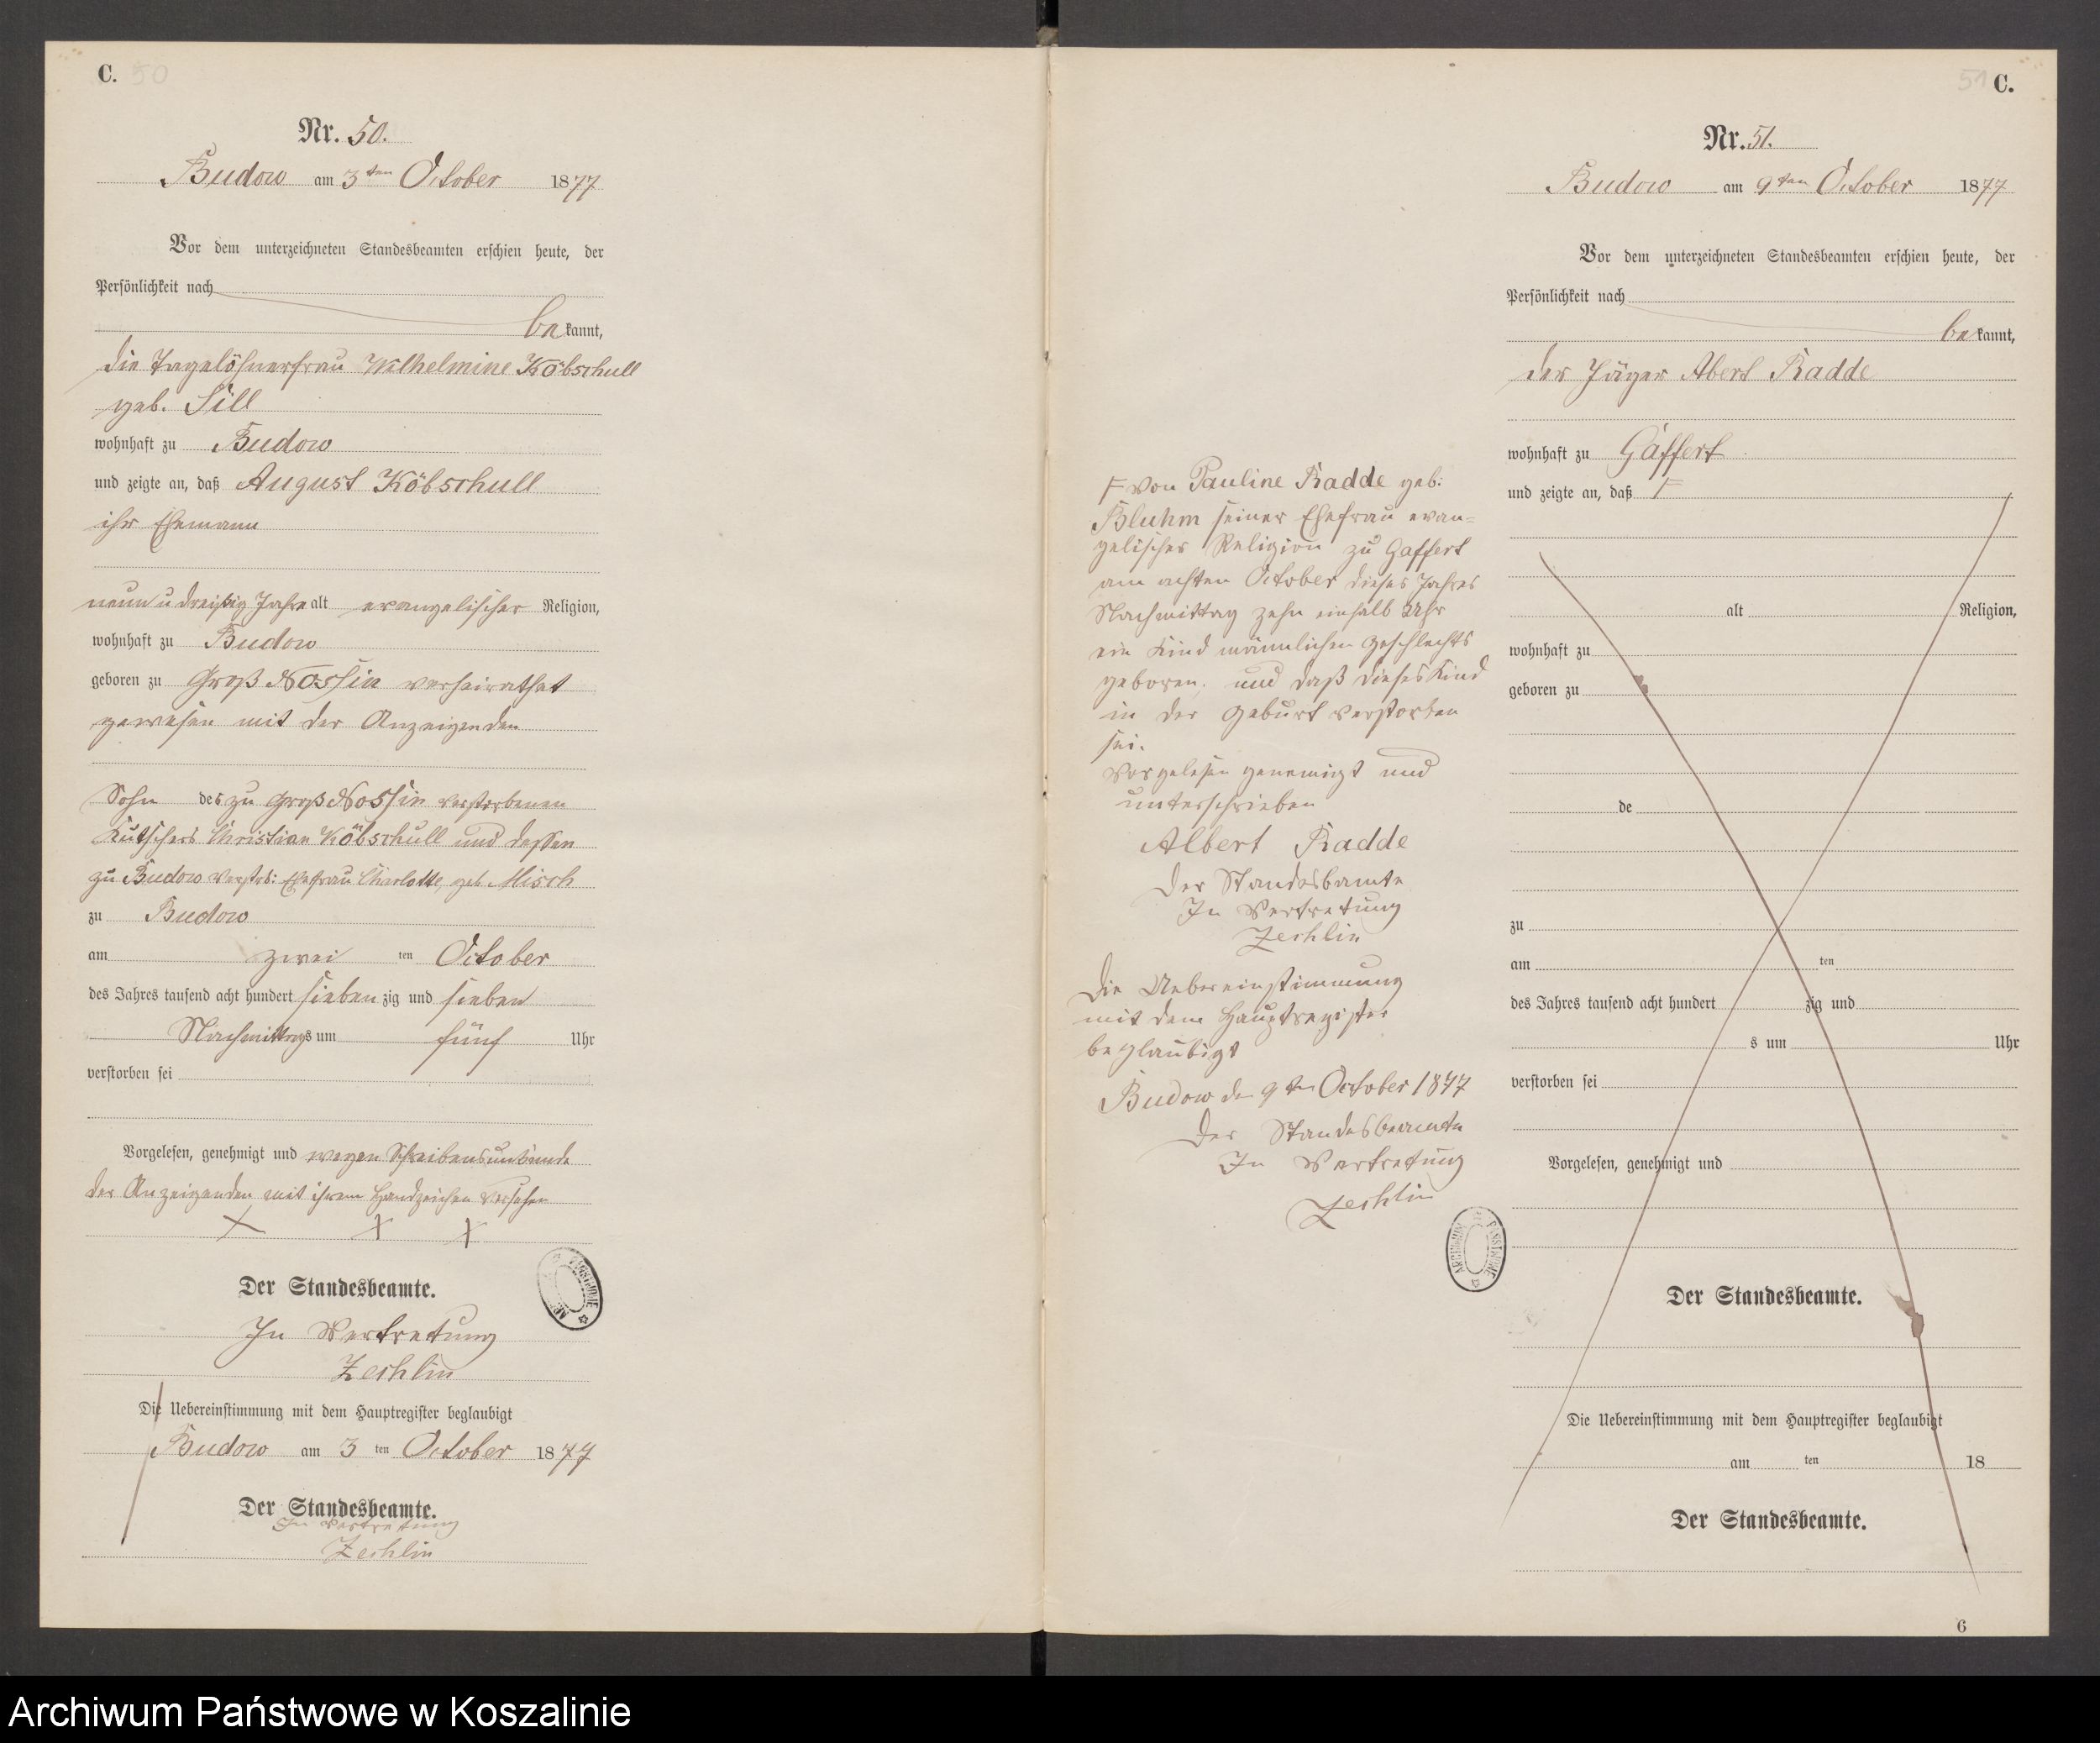 C. 50
Nr. 50.
Budow am 3ten October 1877
Vor dem unterzeichneten Standesbeamten erschien heute, der
Persönlichkeit nach
bekannt,
die Tagelöhnerfrau Wilhelmine Köbschull
geb. Sill
wohnhaft zu Budow
und zeigte an, daß August Köbschull
ihr Ehemann
neun u dreißig Jahre alt evangelischer Religion,
wohnhaft zu Budow
geboren zu Groß Nossin verheirathet
gewesen mit der Anzeigenden
Sohn des zu Groß Nossin verstorbenen
Kutschers Christian Köbschull und dessen
zu Budow verstrb: Ehefrau Charlotte, geb. Misch
zu Budow
am zwei ten October
des Jahres tausend acht hundert sieben zig und sieben
Nachmittags um fünf Uhr
verstorben sei
Vorgelesen, genehmigt und wegen Schreibensunkunde
der Anzeigenden mit ihrem Handzeichen versehen
X X X
Der Standesbeamte.
In Vertretung
Zechlin
Die Uebereinstimmung mit dem Hauptregister beglaubigt
Budow am 3 ten October 1877
Der Standesbeamte.
In Vertretung
Zechlin
51 C.
Nr. 51.
Budow am 9ten October 1877
Vor dem unterzeichneten Standesbeamten erschien heute, der
Persönlichkeit nach
bekannt,
der Jäger Abert Radde
wohnhaft zu Gaffert
und zeigte an, daß F
F von Pauline Radde geb:
Bluhm seiner Ehefrau evan=
gelischer Religion zu Gaffert
am achten October dieses Jahres
Nachmittag zehn einhalb Uhr
ein Kind männlichen Geschlechts
geboren, und daß dieses Kind
in der Geburt verstorben
sei.
Vorgelesen genemigt und
unterschrieben
Albert Radde
Der Standesbamte
In Vertretung
Zechlin
Die Uebereinstimmung
mit dem Hauptregister
beglaubigt
Budow den 9ten October 1877
Der Standesbeamte
In Vertretung
Zechlin
alt Religion,
wohnhaft zu
geboren zu
de
zu
am ten
des Jahres tausend acht hundert zig und
s um Uhr
verstorben sei
Vorgelesen, genehmigt und
Der Standesbeamte.
Die Uebereinstimmung mit dem Hauptregister beglaubigt
am ten 18
Der Standesbeamte.
6
ARCHIWUM PAŃSTWOWE
Archiwum Państwowe w Koszalinie